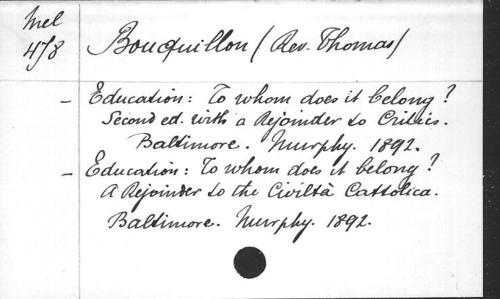 Mel
478
Bouquillon (Rev. Thomas)
- Education: To whom does it belong?
Second ed. with a Rejoinder to Critics.
Baltimore. Murphy. 1892.
- Education: To whom does it belong?
A Rejoinder to the Civiltà Cattolica.
Baltimore. Murphy. 1892.